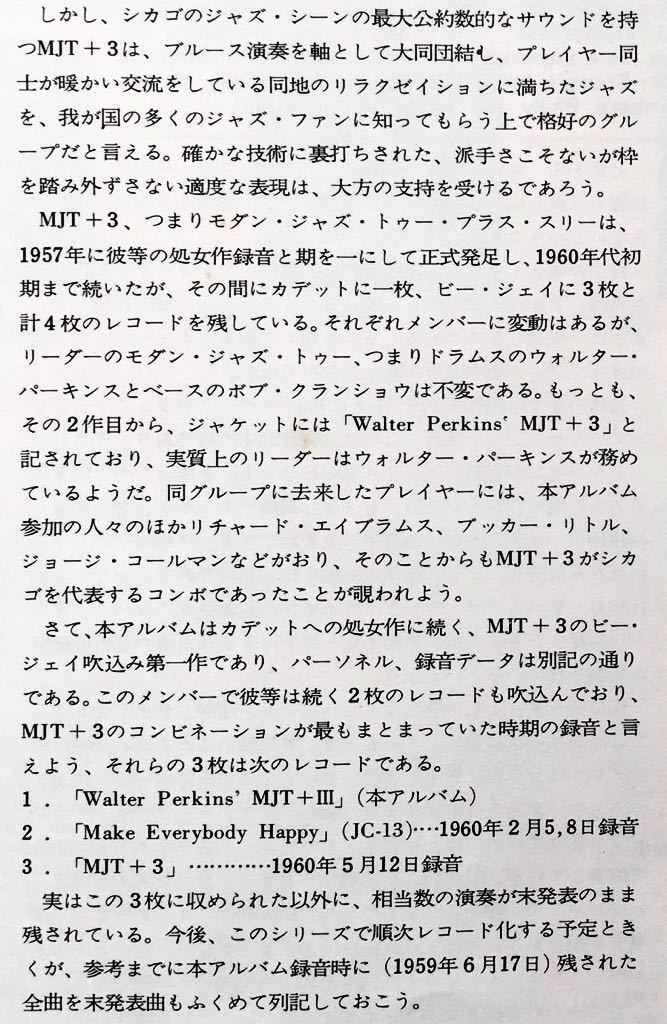 しかし、シカゴのジャズ・シーンの最大公約数的なサウンドを持
つMJT+3は、ブルース演奏を軸として大同団結し、プレイヤー同
士が暖かい交流をしている同地のリラクゼイションに満ちたジャズ
を、我が国の多くのジャズ・ファンに知ってもらう上で格好のグル
ープだと言える。確かな技術に裏打ちされた、派手さこそないが枠
を踏み外ずさない適度な表現は、大方の支持を受けるであろう。
MJT+3、つまりモダン・ジャズ・トゥー・プラス・スリーは、
1957年に彼等の処女作録音と期を一にして正式発足し、1960年代初
期まで続いたが、その間にカデットに一枚、ビー・ジェイに3枚と
計4枚のレコードを残している。それぞれメンバーに変動はあるが、
リーダーのモダン・ジャズ・トゥー、つまりドラムスのウォルター・
パーキンスとベースのボブ・クランショウは不変である。もっとも、
その2作目から、ジャケットには「Walter Perkins‘ MJT+3」と
記されており、実質上のリーダーはウォルター・パーキンスが務め
ているようだ。同グループに去来したプレイヤーには、本アルバム
参加の人々のほかリチャード・エイブラムス、ブッカー・リトル、
ジョージ・コールマンなどがおり、そのことからもMJT+3がシカ
ゴを代表するコンボであったことが覗われよう。
さて、本アルバムはカデットへの処女作に続く、MJT+3のビー・
ジェイ吹込み第一作であり、パーソネル、録音データは別記の通り
である。このメンバーで彼等は続く2枚のレコードも吹込んでおり、
MJT+3のコンビネーションが最もまとまっていた時期の録音と言
えよう、それらの3枚は次のレコードである。
1.「Walter Perkins’ MJT+III」(本アルバム)
2.「Make Everybody Happy」(JC-13)‥‥1960年2月5,8日録音
3.「MJT+3」…………1960年5月12日録音
実はこの3枚に収められた以外に、相当数の演奏が末発表のまま
残されている。今後、このシリーズで順次レコード化する予定とき
くが、参考までに本アルバム録音時に(1959年6月17日)残された
全曲を末発表曲もふくめて列記しておこう。